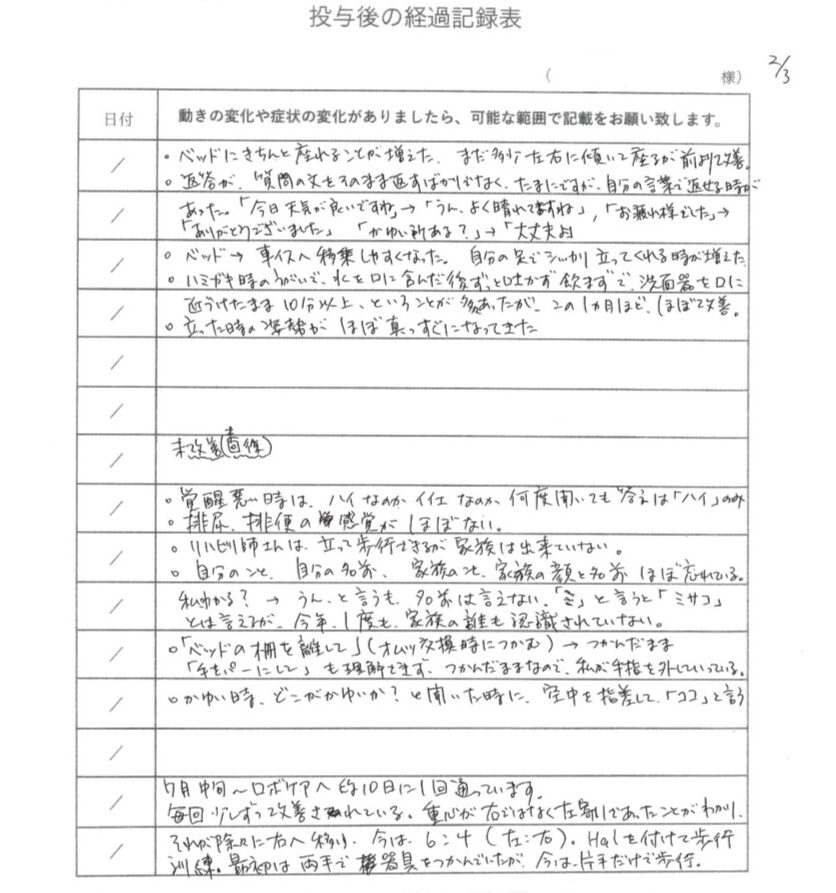 投与後の経過記録表
(　　　　様)
2/3
日付
動きの変化や症状の変化がありましたら、可能な範囲で記載をお願い致します。
/
。ベッドにきちんと座れることが増えた。まだ多少左右に傾いて座るが前より改善。
。返答が、質問の文をそのまま返すばかりでなく、たまにですが、自分の言葉で返せる時が
/
あった。「今日天気が良いですね」→「うん、よく晴れてますね」,「お疲れ様でした」→
「ありがとうございました」「かゆい所ある?」→「大丈夫よ」
/
。ベッド→車イスへ移乗しやすくなった。自分の足でシッカリ立ってくれる時が増えた
。ハミガキ時のうがいで、水を口に含んだ後ずっと吐かず飲まずで、洗面器を口に
/
近づけたまま10分以上、ということが多かったが、この1ヵ月ほど、ほぼ改善。
。立った時の姿勢がほぼ真っすぐになってきた
/
/
/
未改善
/
。覚醒悪い時は、ハイなのかイイエなのか、何度聞いても答えは「ハイ」のみ
。排尿、排便の感覚がほぼない。
/
。リハビリ師さんは、立って歩行できるが家族は出来ていない。
。自分のこと、自分の名前、家族のこと、家族の顔と名前ほぼ忘れている。
/
私わかる?→うん、と言うも、名前は言えない、「ミ」と言うと「ミサコ」
とは言えるが、今年、1度も、家族の誰も認識されていない。
/
。「ベッドの柵を離して」(オムツ交換時につかむ)→つかんだまま
「手をパーにして」も理解できず、つかんだままなので、私が手指を外していっている。
/
。かゆい時、どこがかゆいか?と聞いた時に、空中を指差して、「ココ」と言う
/
/
7月中旬〜ロボケアへ約10日に1回通っています。
毎回少しずつ改善されている。重心が右ではなく左寄りであったことがわかり、
/
それが除々に右へ移り、今は、6:4(左:右)。Halを付けて歩行
訓練。最初は両手で器具をつかんでいたが、今は、片手だけで歩行。